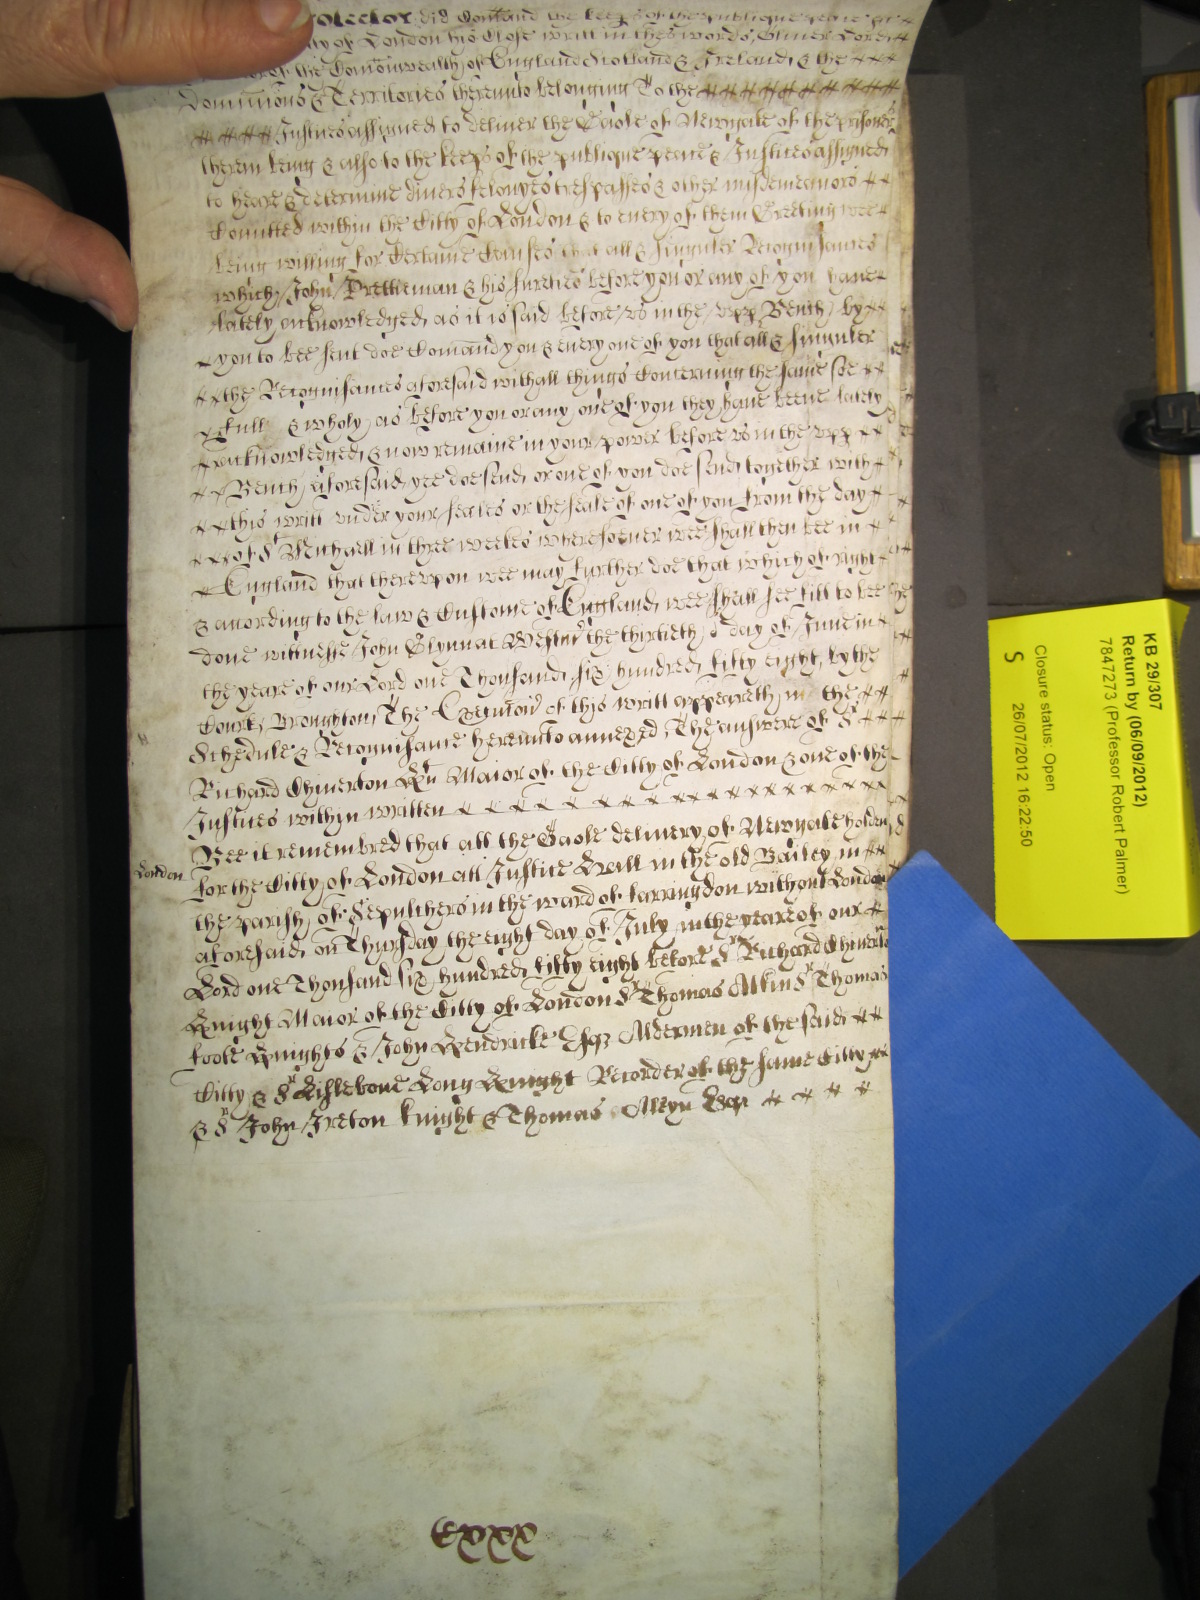 Protector did Com̄and the keeps of the publique peace
Citty of London his Close writt in thes words, Oliver Lord
of the Com̄onwealth of England Scotland & Ireland, & the
Dominions & Territories thereunto belonging To the
Justices assigned to deliver the Gaole of Newgate of the prisoners
therein being & also to the keeps of the publique peace & Justices assigned
to heare & determine divers felonyes trespasses & other misdemeanors
Com̄itted within the Citty of London & to every of them Greeting wee
being willing for Certaine Causes that all & singuler Recognisances
which John Prettieman & his sureties before you or any of you have
lately acknowledged as it is said before us in the upp Bench, by
you to bee sent doe Com̄and you & every one of you that all & singuler
the Recognisances aforesaid with all things Concerning the same soe
full & wholy, as before you or any one of you they have beene lately
acknowledged, & now remaine in your power before us in the upp
Bench, aforesaid yee doe send, or one of you doe send together with
this writt under your seales or the seale of one of you from the day
of St Michaell in three weekes wheresoever wee shall then bee in
England that thereupon wee may further doe that which of right
& according to the law & Custome of England, wee shall see fitt to bee
done wittnesse John Glynn at Westmr the thirtieth day of June in
the year of our Lord one Thousand, six hundred, fifty eight, by the
Court, Broughton, The Execution of this writt appeareth in the
Schedule & Recognisance hereunto annexed, The answere of Sr
Richard Chiverton Knt Maior of the Citty of London & one of the
Justices within written
London
Bee it remembred that att the Gaole delivery, of Newgate holden
for the Citty, of London att Justice Hall in the old Bailey, in
the parish, of Sepulchers in the ward of farringdon without London
aforesaid, on Thursday the eight day of July in the yeare of our
Lord one Thousand six hundred, fifty eight before Sr Richard Chiverton
Knight Maior of the Citty of London Sr Thomas Atkin Sr Thomas
foote Knights & John Kendricke Esqr Aldermen of the said
Citty & Sr Lislebone Long Knight Recorder of the same Citty
& Sr John Ireton Knight & Thomas Alleyn Esqr
CXXX
KB 29/307
Return by (06/09/2012)
7847273 (Professor Robert Palmer)
Closure status: Open
26/07/2012 16:22:50
S